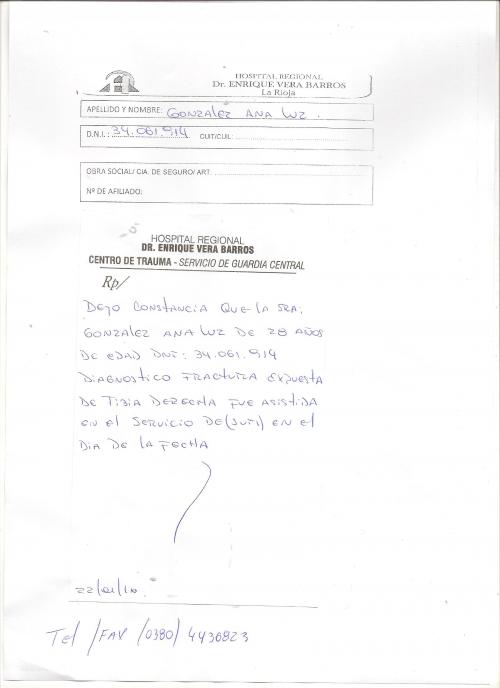 HOSPITAL REGIONAL
Dr. ENRIQUE VERA BARROS
La Rioja
APELLIDO Y NOMBRE: GONZALEZ ANA LUZ.
D.N.I.: 34.061.914 CUIT/CUIL:
OBRA SOCIAL/ CIA. DE SEGURO/ ART.
Nº DE AFILIADO:
HOSPITAL REGIONAL
DR. ENRIQUE VERA BARROS
CENTRO DE TRAUMA - SERVICIO DE GUARDIA CENTRAL
Rp/
DEJO CONSTANCIA QUE LA SRA:
GONZALEZ ANA LUZ DE 28 AÑOS
DE EDAD DNI: 34.061.914
DIAGNOSTICO FRACTURA EXPUESTA
DE TIBIA DERECHA FUE ASISTIDA
EN el SERVICIO DE (SUTI) EN el
DIA DE LA FECHA
Tel /FAX (0380) 4436823